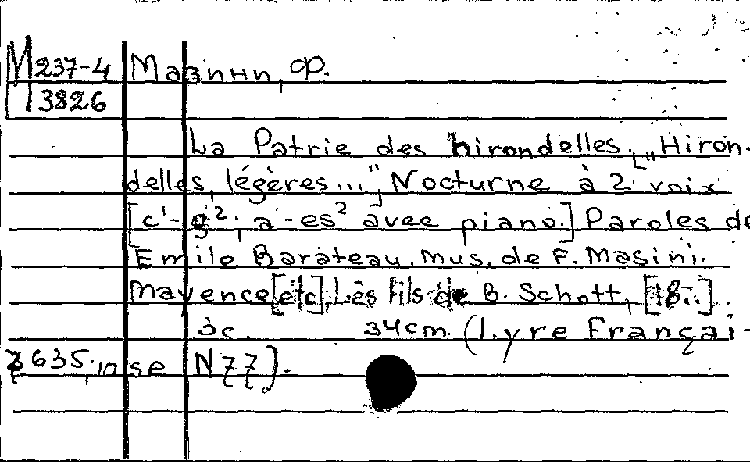 М 237-4 Мазини, Ф.
3826
La Patrie des hirondelles. [„Hiron-
delles légères...”] Nocturne à 2 voix
[c¹-g²; a-es² avec piano.] Paroles de
Emile Barateau. Mus. de F. Masini.
Mayence [etc], Les fils de B. Schott, [18..].
3c. 34cm (Lyre Françai-
3635 se N 77).